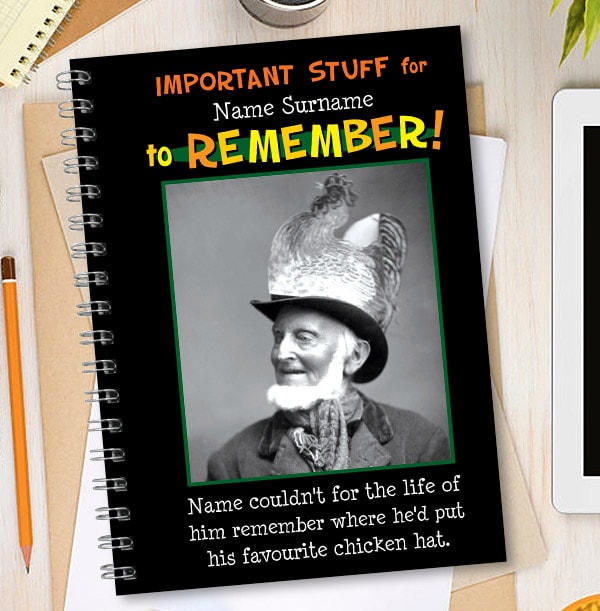 IMPORTANT STUFF for
Name Surname
to REMEMBER!
Name couldn't for the life of
him remember where he'd put
his favourite chicken hat.